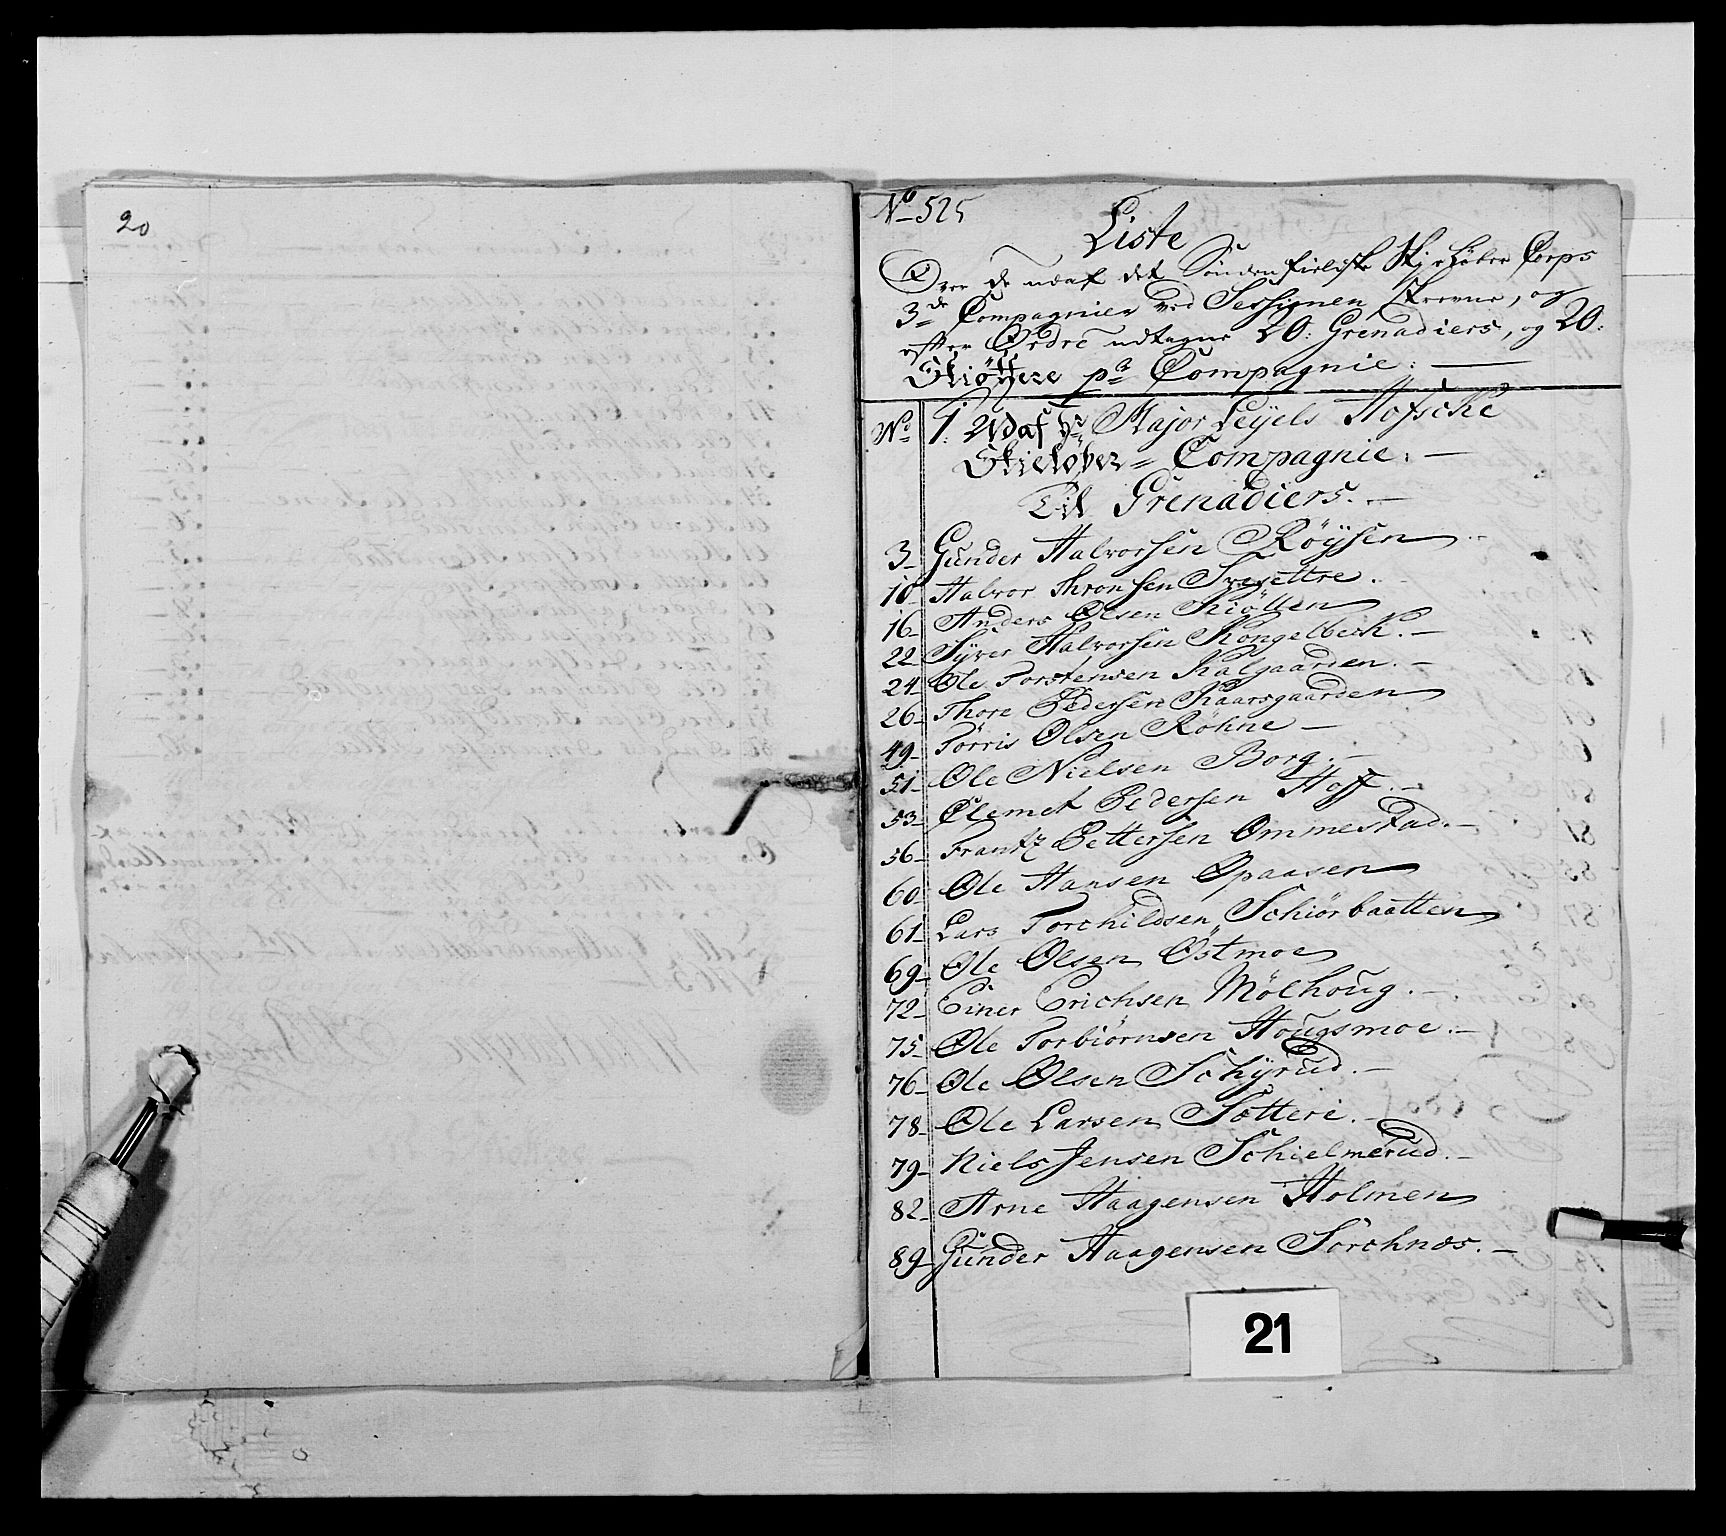 20
No 525
Liste
Over de udaf det Søndenfieldske Skieløber Corps
3de Compagnier ved Sessionen, og
efter Ordre udtagne 20: Grenadiers, og 20:
Skiøttere pr Compagnie:
No 1. Udaf Hr Major Leÿels Hofsche
Skieløber= Compagnie.
Til Grenadiers.
3 Gunder Halvorsen Röÿsen
10 Halvor Thronsen
16 Anders Olsen Kiölen
22 Sÿver Halvorsen Kongelbeck.
24 Ole Torstensen Kalgaarden.
26 Thore Pedersen Kaarsgaarden
49 Törris Olsen Röhne
51 Ole Nielsen Borg.
53 Clemet Pedersen Hoff.
56 Frantz Pettersen Ommestad.
60 Ole Hansen Opaasen
61 Lars Torchildsen Schiörbaatten
69 Ole Olsen Östmoe
72 Einer Erichsen Mölhoug.
75 Ole Torbiörnsen Hougsmoe.
76 Ole Olsen Schÿrud.
78 Ole Larsen Sötteri.
79 Niels Jensen Schielmerud.
82 Arne Haagensen Holmen
89 Gunder Haagensen Sörchnæs.
21